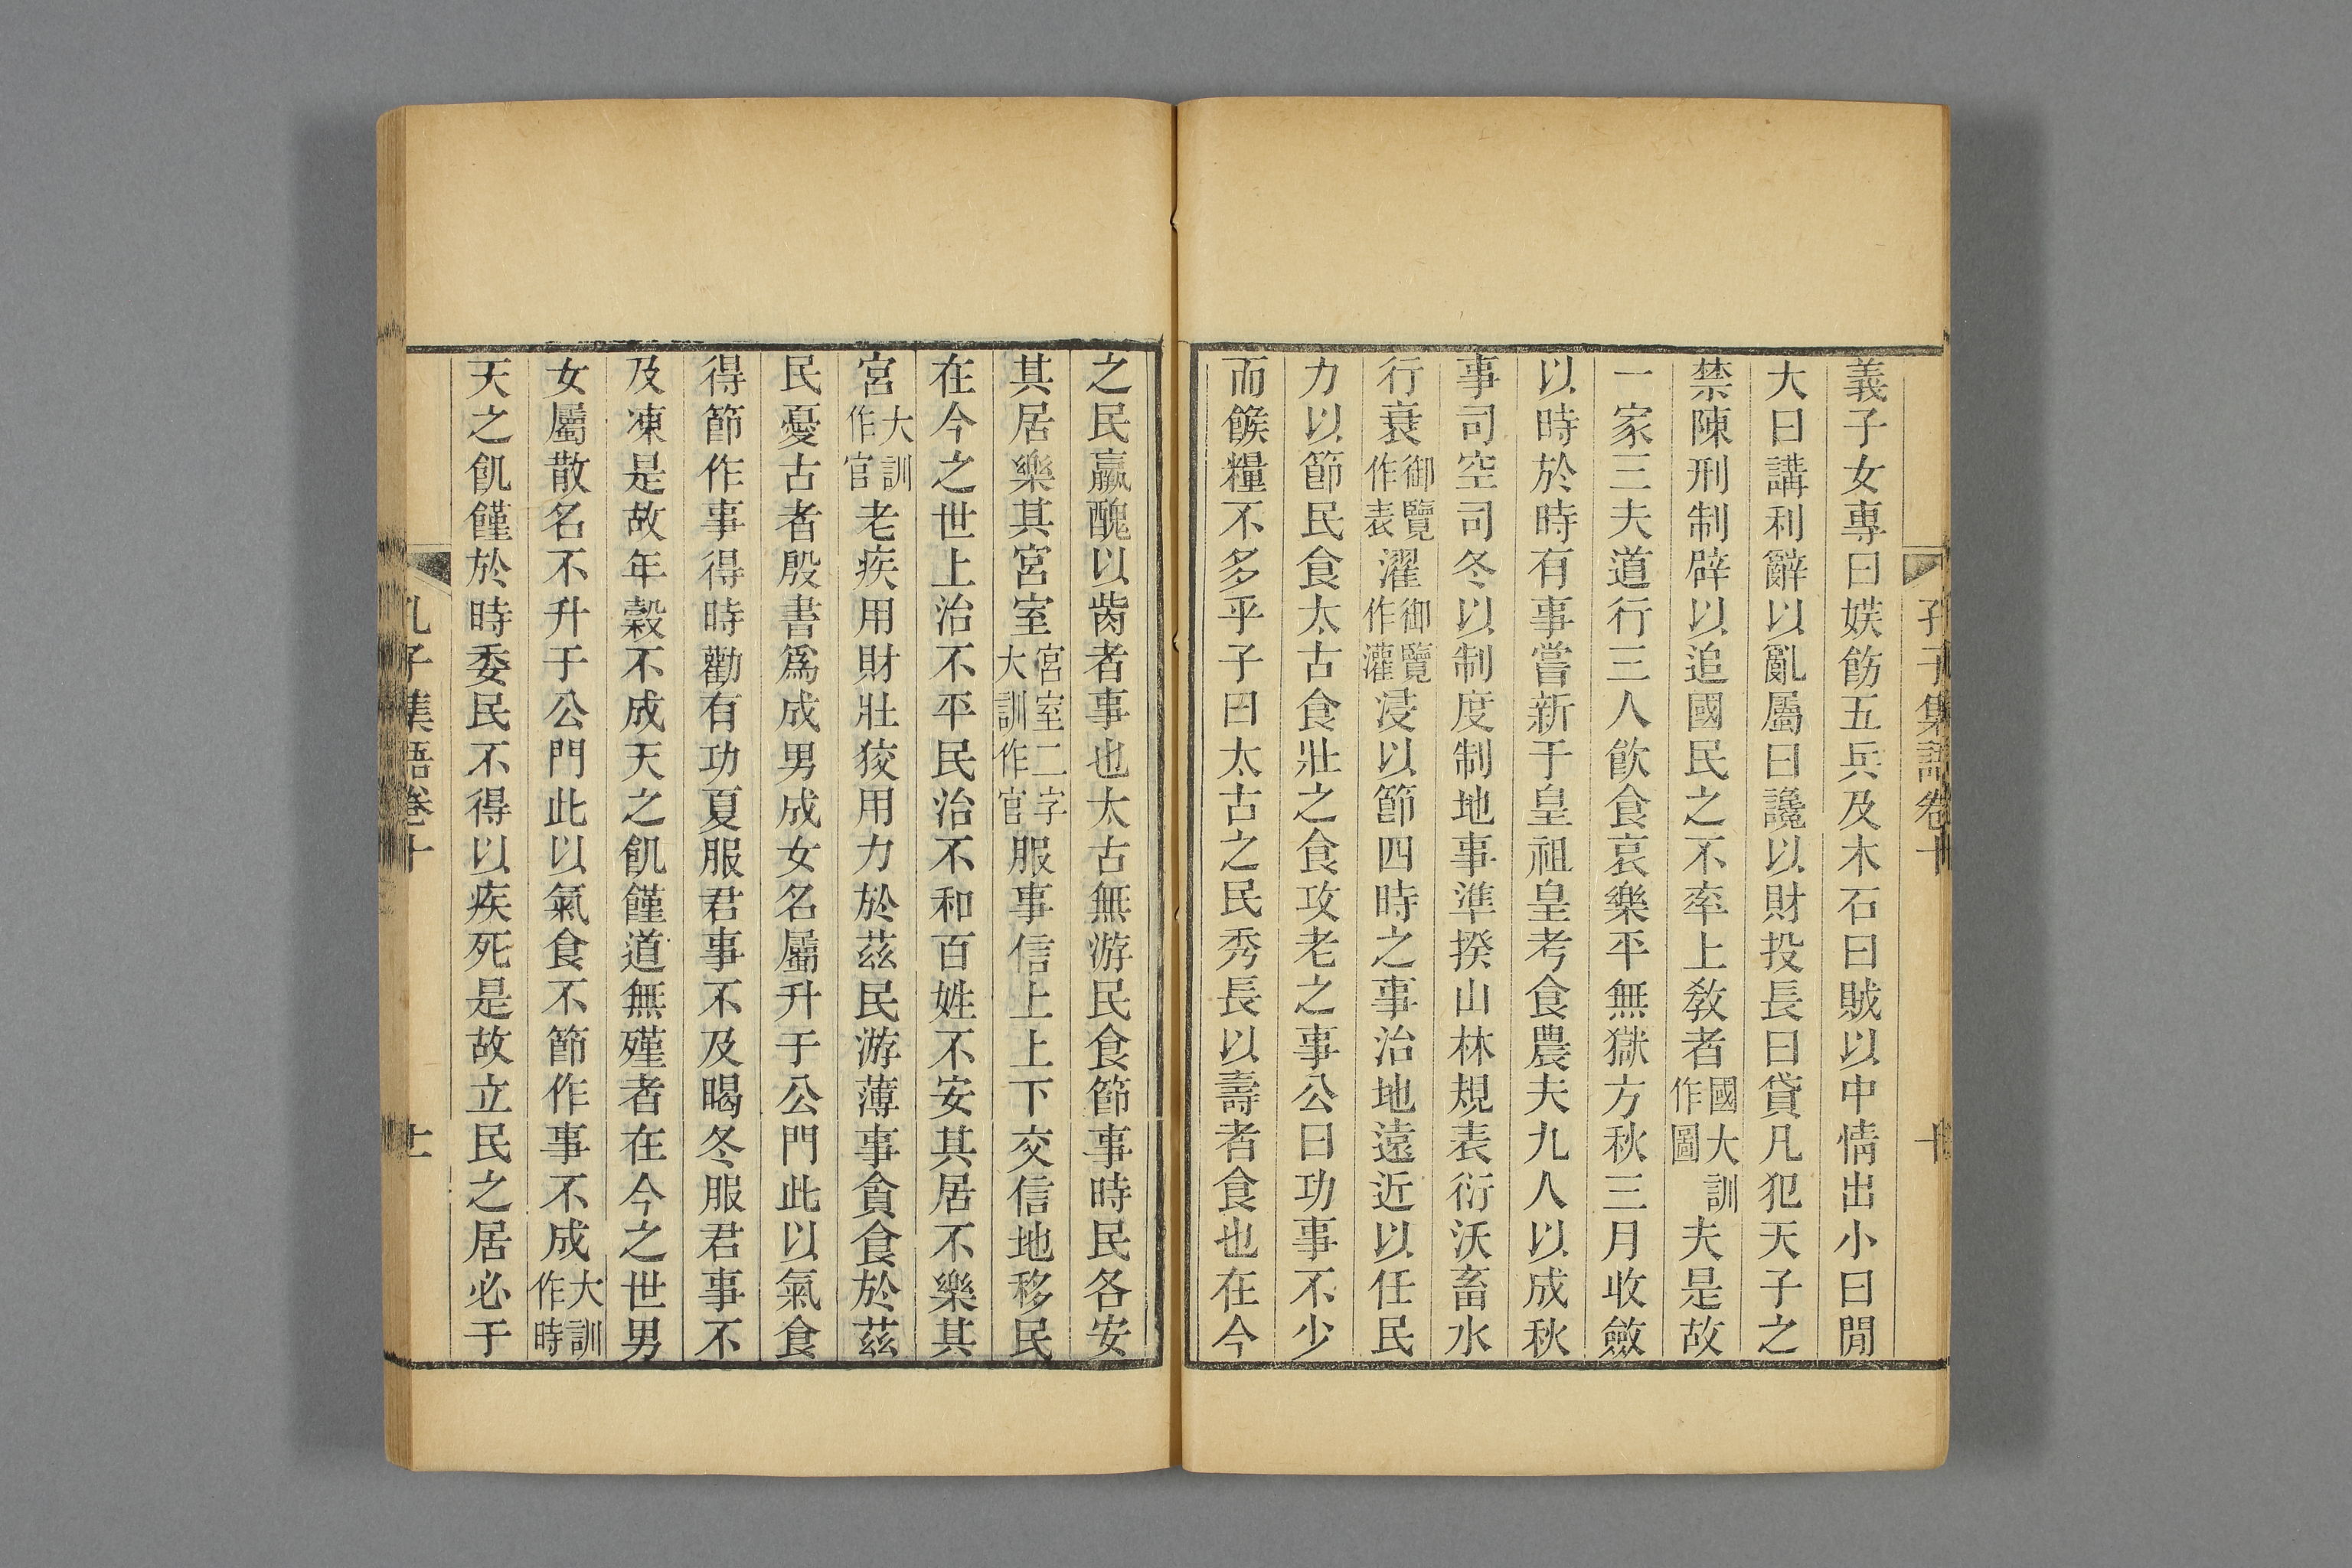 孔子集語卷十
十
義子女專曰媄飭五兵及木石曰賊以中情出小曰閒
大曰講利辭以亂屬曰讒以財投長曰貸凡犯天子之
禁陳刑制辟以追國民之不率上敎者國大訓作圖夫是故
一家三夫道行三人飮食哀樂平無獄方秋三月收斂
以時於時有事嘗新于皇祖皇考食農夫九人以成秋
事司空司冬以制度制地事準揆山林規表衍沃畜水
行衰御覽作表濯御覽作灌浸以節四時之事治地遠近以任民
力以節民食太古食壯之食攻老之事公曰功事不少
而餱糧不多乎子曰太古之民秀長以壽者食也在今
之民羸醜以胔者事也太古無游民食節事時民各安
其居樂其宮室宮室二字大訓作官服事信上上下交信地移民
在今之世上治不平民治不和百姓不安其居不樂其
宮大訓作官老疾用財壯狡用力於茲民游薄事貪食於茲
民憂古者殷書爲成男成女名屬升于公門此以氣食
得節作事得時勸有功夏服君事不及暍冬服君事不
及凍是故年穀不成天之飢饉道無殣者在今之世男
女屬散名不升于公門此以氣食不節作事不成大訓作時
天之飢饉於時委民不得以疾死是故立民之居必于
孔子集語卷十
十一